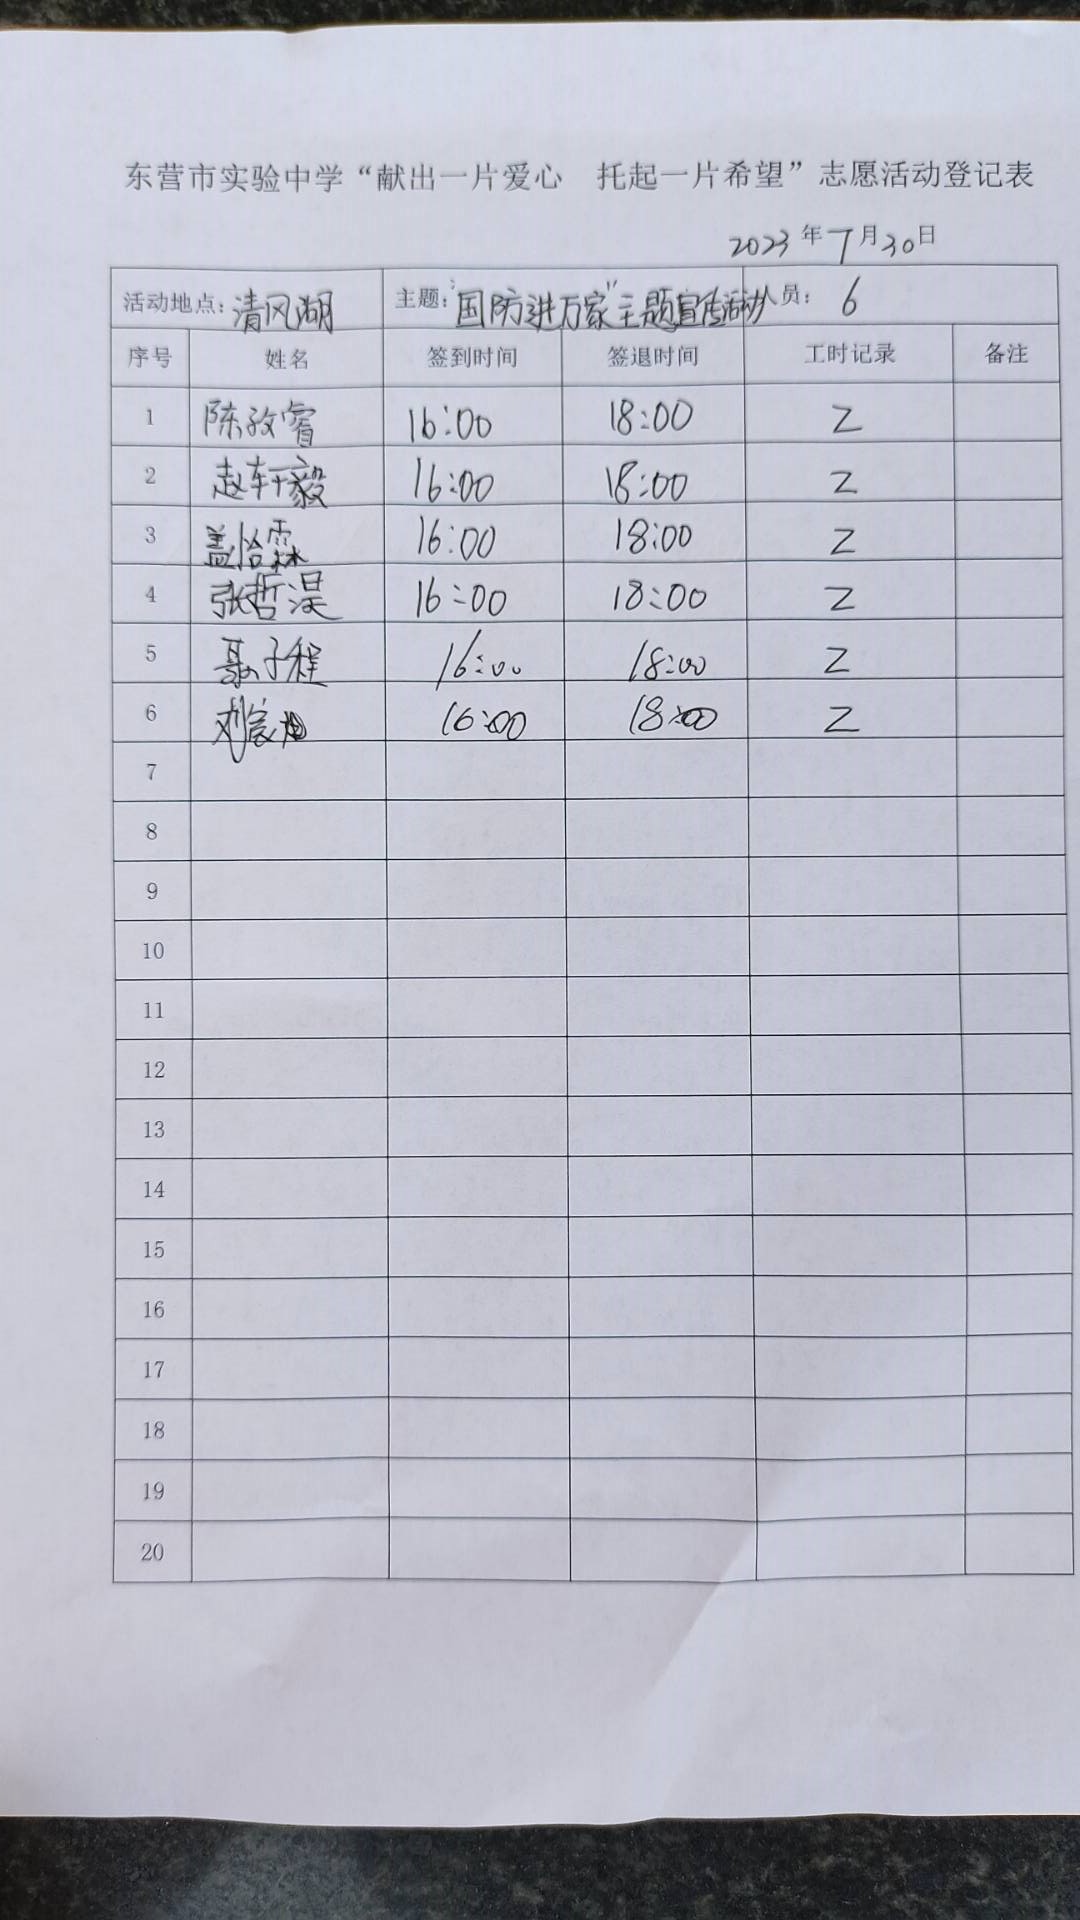 东营市实验中学“献出一片爱心 托起一片希望”志愿活动登记表
2023年7月30日
活动地点：清风湖 主题：“国防进万家”主题宣传活动 人员：6
序号 姓名 签到时间 签退时间 工时记录 备注
1 陈孜睿 16:00 18:00 2
2 赵轩毅 16:00 18:00 2
3 盖怡霖 16:00 18:00 2
4 张哲淏 16:00 18:00 2
5 聂子程 16:00 18:00 2
6 刘宸 16:00 18:00 2
7
8
9
10
11
12
13
14
15
16
17
18
19
20